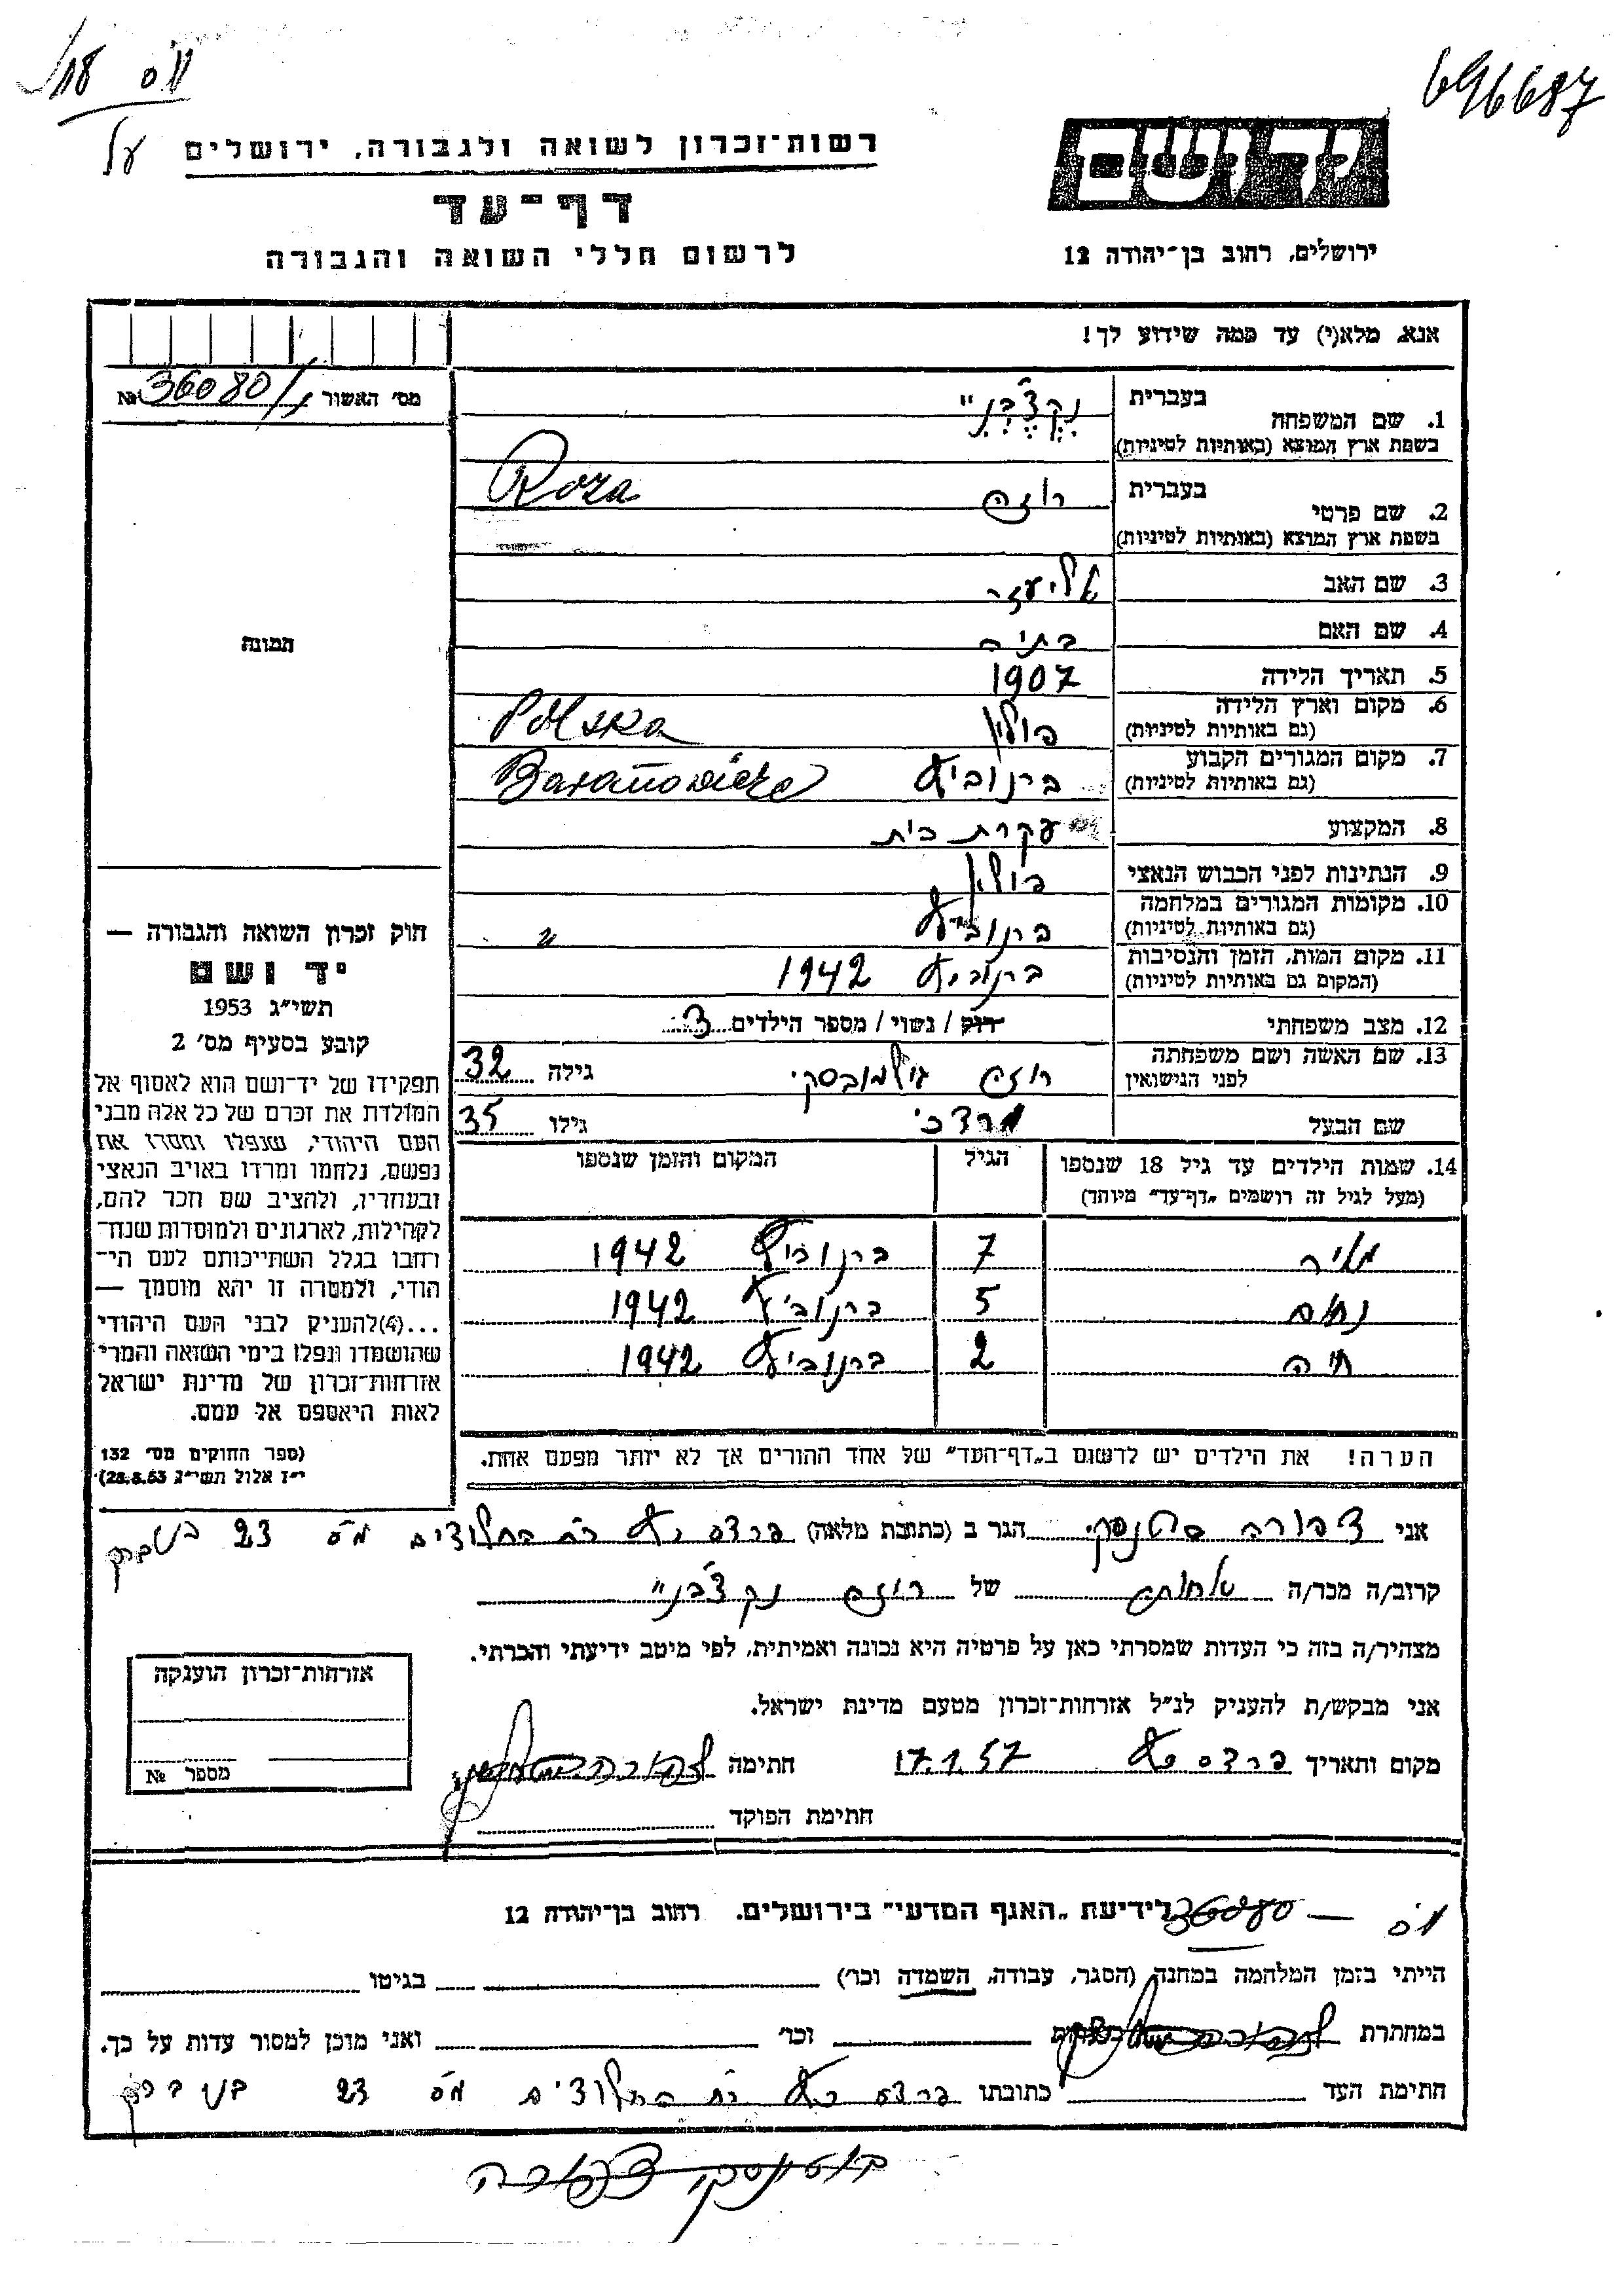 696687
רשות-זכרון לשואה ולגבורה, ירושלים
על
יד ושם
דף-עד
לרשום חללי השואה והגבורה
ירושלים, רחוב בן-יהודה 12
אנא, מלא(י) עד כמה שידוע לך!
מס' האשור № 36080/
1. שם המשפחה
בעברית
בשפת ארץ המוצא (באותיות לטיניות)
2. שם פרטי
בעברית רוזה Roza
בשפת ארץ המוצא (באותיות לטיניות)
3. שם האב אליעזר
4. שם האם בתיה
תמונה
5. תאריך הלידה 1907
6. מקום וארץ הלידה פולין Polska
(גם באותיות לטיניות)
7. מקום המגורים הקבוע ברנוביץ Baranowicze
(גם באותיות לטיניות)
8. המקצוע עקרת בית
9. הנתינות לפני הכבוש הנאצי פולין
10. מקומות המגורים במלחמה ברנוביץ "
(גם באותיות לטיניות)
11. מקום המות, הזמן והנסיבות ברנוביץ 1942
(המקום גם באותיות לטיניות)
12. מצב משפחתי רוק / נשוי / מספר הילדים 3
13. שם האשה ושם משפחתה רוזה גילה 32
לפני הנישואין
שם הבעל מרדכי גילו 35
14. שמות הילדים עד גיל 18 שנספו הגיל המקום והזמן שנספו
(מעל לגיל זה רושמים "דף-עד" מיוחד)
מאיר 7 ברנוביץ 1942
נחום 5 ברנוביץ 1942
חיה 2 ברנוביץ 1942
הערה! את הילדים יש לרשום ב"דף-העד" של אחד ההורים אך לא יותר מפעם אחת.
חוק זכרון השואה והגבורה —
יד ושם
תשי"ג 1953
קובע בסעיף מס' 2
תפקידו של יד-ושם הוא לאסוף אל
המולדת את זכרם של כל אלה מבני
העם היהודי, שנפלו ומסרו את
נפשם, נלחמו ומרדו באויב הנאצי
ובעוזריו, ולהציב שם וזכר להם,
לקהילות, לארגונים ולמוסדות שנח-
רחבו בגלל השתייכותם לעם הי-
הודי, ולמטרה זו יהא מוסמך —
...(4)להעניק לבני העם היהודי
שהושמדו ונפלו בימי השואה והמרי
אזרחות-זכרון של מדינת ישראל
לאות היאספם אל עמם.
(ספר החוקים מס' 132
י"ז אלול תשי"ג 28.8.53)
אני צפורה הגר ב (כתובת מלאה) פרדס כץ רח החלוצים מס 23 בני ברק
קרוב/ה מכר/ה אחותה של רוזה
מצהיר/ה בזה כי העדות שמסרתי כאן על פרטיה היא נכונה ואמיתית, לפי מיטב ידיעתי והכרתי.
אני מבקש/ת להעניק לנ"ל אזרחות-זכרון מטעם מדינת ישראל.
מקום ותאריך פרדס כץ 17.1.57 חתימה
חתימת הפוקד
אזרחות-זכרון הוענקה
מספר №
מס — 36080 לידיעת "האגף המדעי" בירושלים. רחוב בן-יהודה 12
הייתי בזמן המלחמה במחנה (הסגר, עבודה, השמדה וכו') בגיטו
במחתרת וכו' ואני מוכן למסור עדות על כך.
חתימת העד כתובתו פרדס כץ רח החלוצים מס 23 בני ברק
צפורה